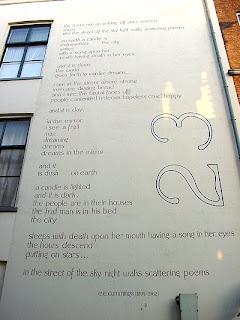 the hours rise up putting off stars and it is
dawn
into the street of the sky light walks scattering poems
on earth a candle is
extinguished the city
wakes
with a song upon her
mouth having death in her eyes
and it is dawn
the world
goes forth to murder dreams....
i see in the street where strong
men are digging bread
and i see the brutal faces of
people contented hideous hopeless cruel happy
and it is day,
in the mirror
i see a frail
man
dreaming
dreams
dreams in the mirror
and it
is dusk on earth
a candle is lighted
and it is dark.
the people are in their houses
the frail man is in his bed
the city
sleeps with death upon her mouth having a song in her eyes
the hours descend
putting on stars....
in the street of the sky night walks scattering poems
e.e. cummings (1894-1962)
23